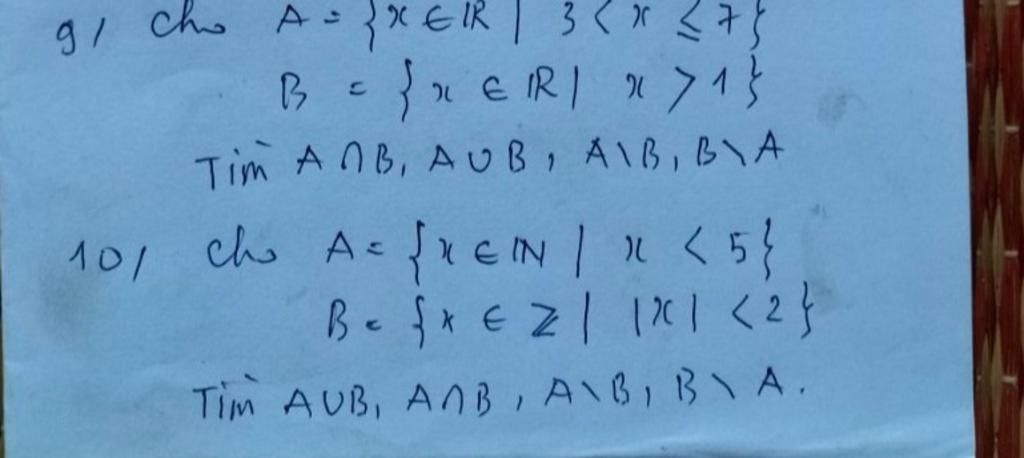 9/ Cho A = {x ∈ ℝ | 3 < x ≤ 7}
B = {x ∈ ℝ | x > 1}
Tìm A∩B, A∪B, A\B, B\A
10/ Cho A = {x ∈ ℕ | x < 5}
B = {x ∈ ℤ | |x| < 2}
Tìm A∪B, A∩B, A\B, B\A.